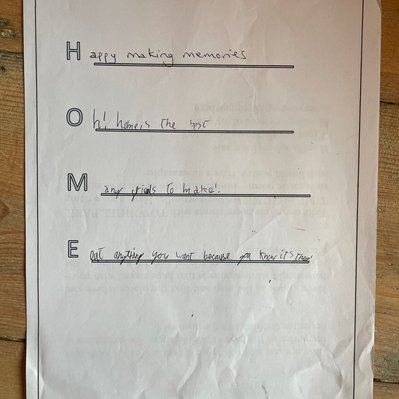 Happy making memories
Oh! home is the best
Many friends to make!
Eeat anything you want because you know it's